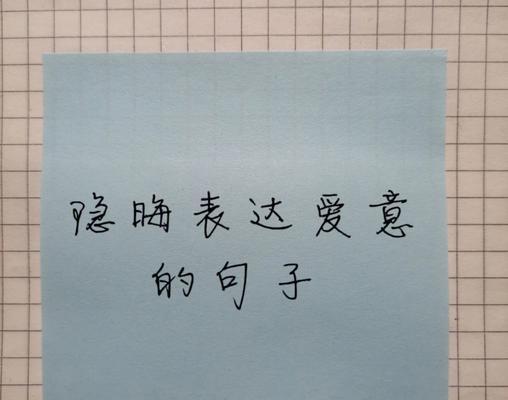 隐晦表达爱意
的句子